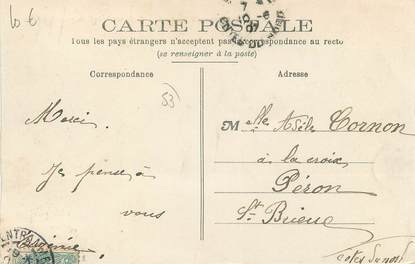 10 €
CARTE POSTALE
Tous les pays étrangers n'acceptent pas la correspondance au recto
(se renseigner à la poste)
Correspondance
Adresse
53
Merci
Je pense à
vous
Melle Adèle Cornon
à la croix
Péron
St Brieuc
Côtes du nord